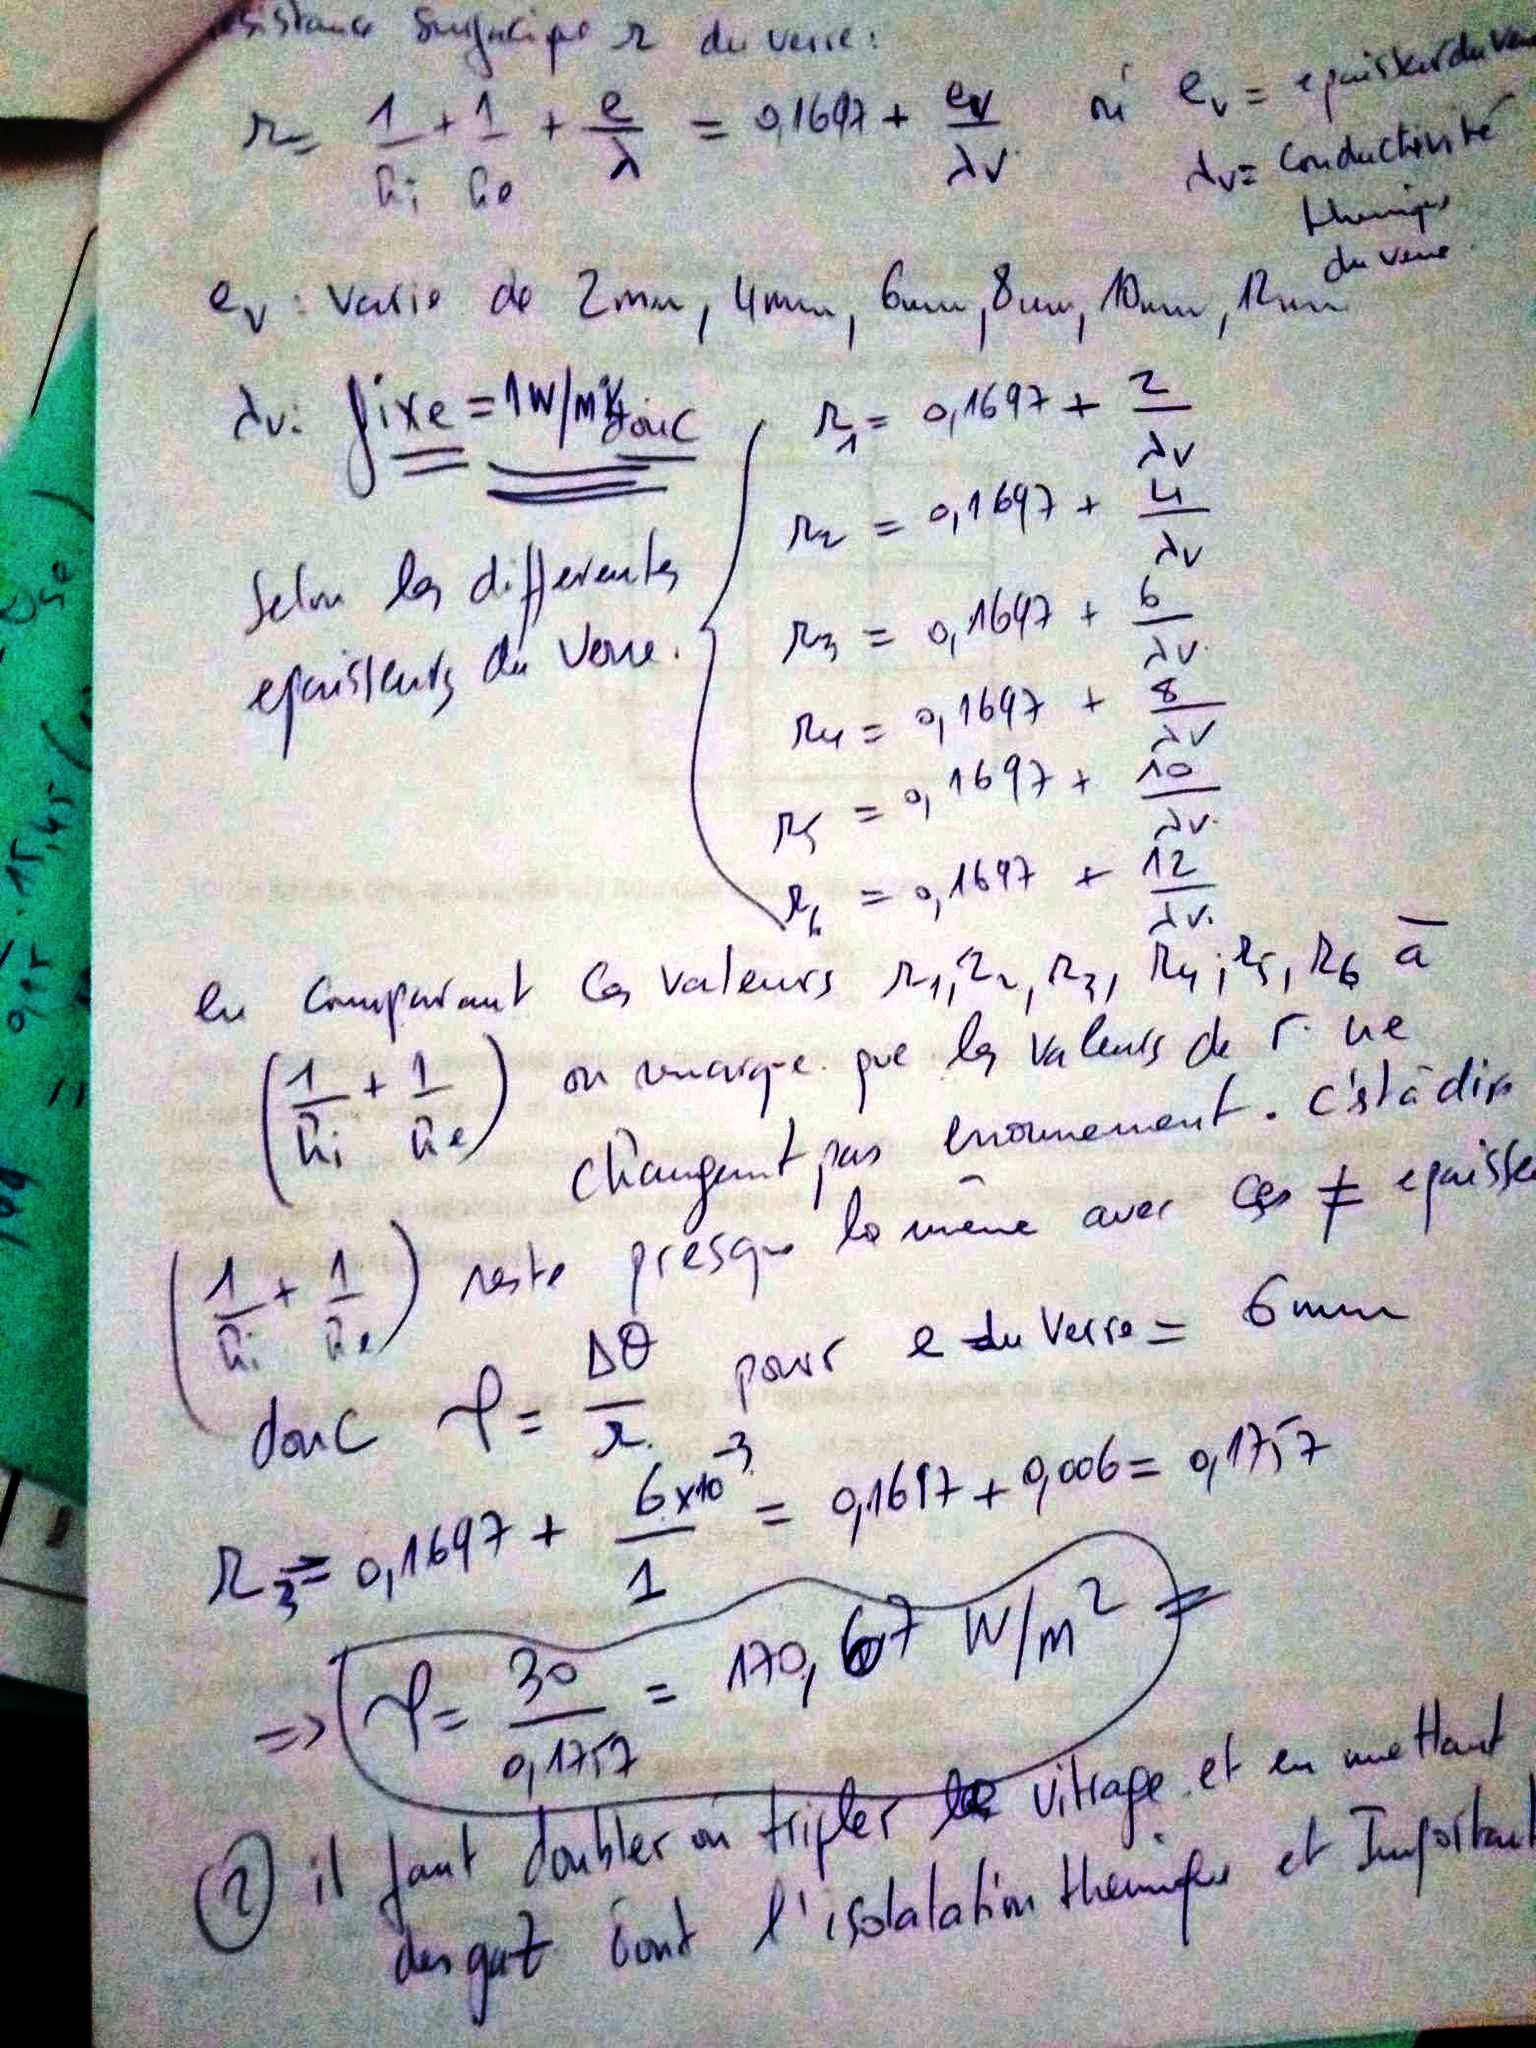 résistance surfacique r du verre:
r = 1/hi + 1/he + e/λ = 0,1697 + ev/λv où ev = epaisseur du verre
λv = conductivité
thermique
du verre
ev : varie de 2mm, 4mm, 6mm, 8mm, 10mm, 12mm
λv: fixe = 1W/m°K donc
r1 = 0,1697 + 2/λv
r2 = 0,1697 + 4/λv
Selon les differentes
epaisseurs du verre.
r3 = 0,1697 + 6/λv
r4 = 0,1697 + 8/λv
r5 = 0,1697 + 10/λv
r6 = 0,1697 + 12/λv
en comparant les valeurs r1, r2, r3, r4, r5, r6 à
(1/hi + 1/he) on remarque que les valeurs de r ne
changent pas enormement. c'est à dire
(1/hi + 1/he) reste presque la même avec ces ≠ epaisse
donc φ = Δθ/r pour e du verre = 6mm
r3 = 0,1697 + 6x10⁻³/1 = 0,1697 + 0,006 = 0,1757
=> φ = 30/0,1757 = 170,67 W/m²
② il faut doubler ou tripler le vitrage et en mettant
des gaz dont l'isolatation thermique et Important